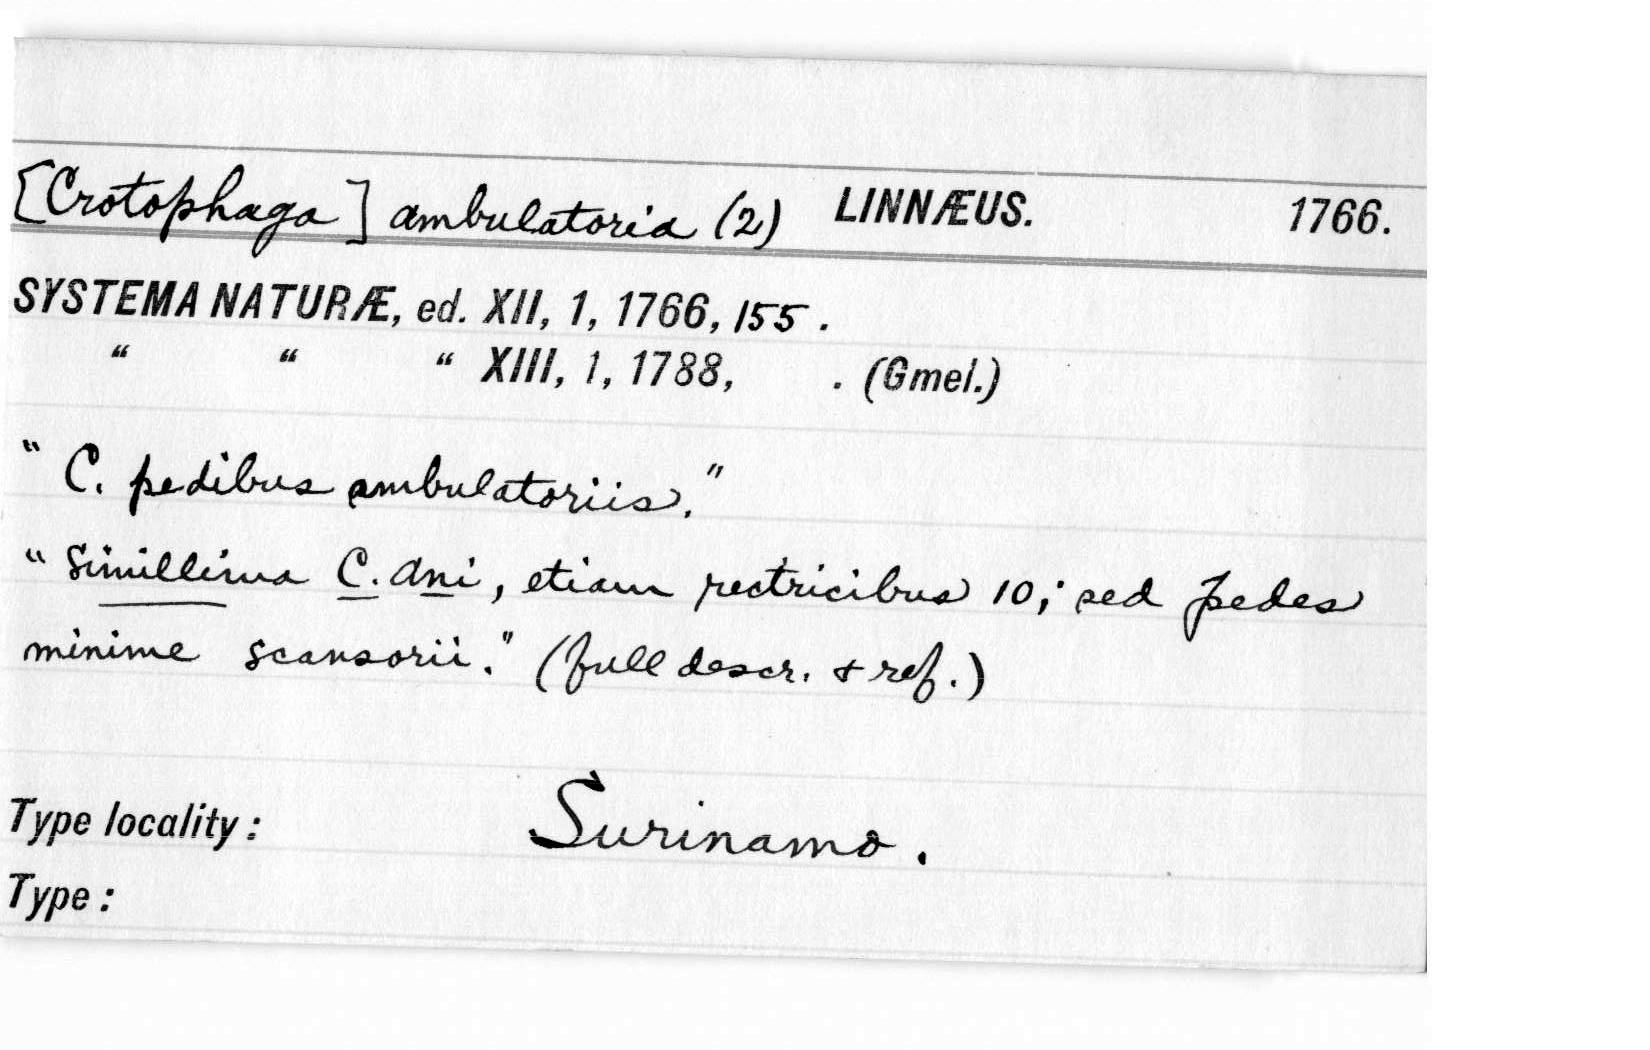 [Crotophaga] ambulatoria (2) LINNÆUS. 1766.
SYSTEMA NATURÆ, ed. XII, 1, 1766, 155.
“ “ “ XIII, 1, 1788, . (Gmel.)
“C. pedibus ambulatoriis.”
“Simillima C. Ani, etiam rectricibus 10; sed pedes
minime scansorii.” (full descr. & ref.)
Type locality: Surinamo.
Type: